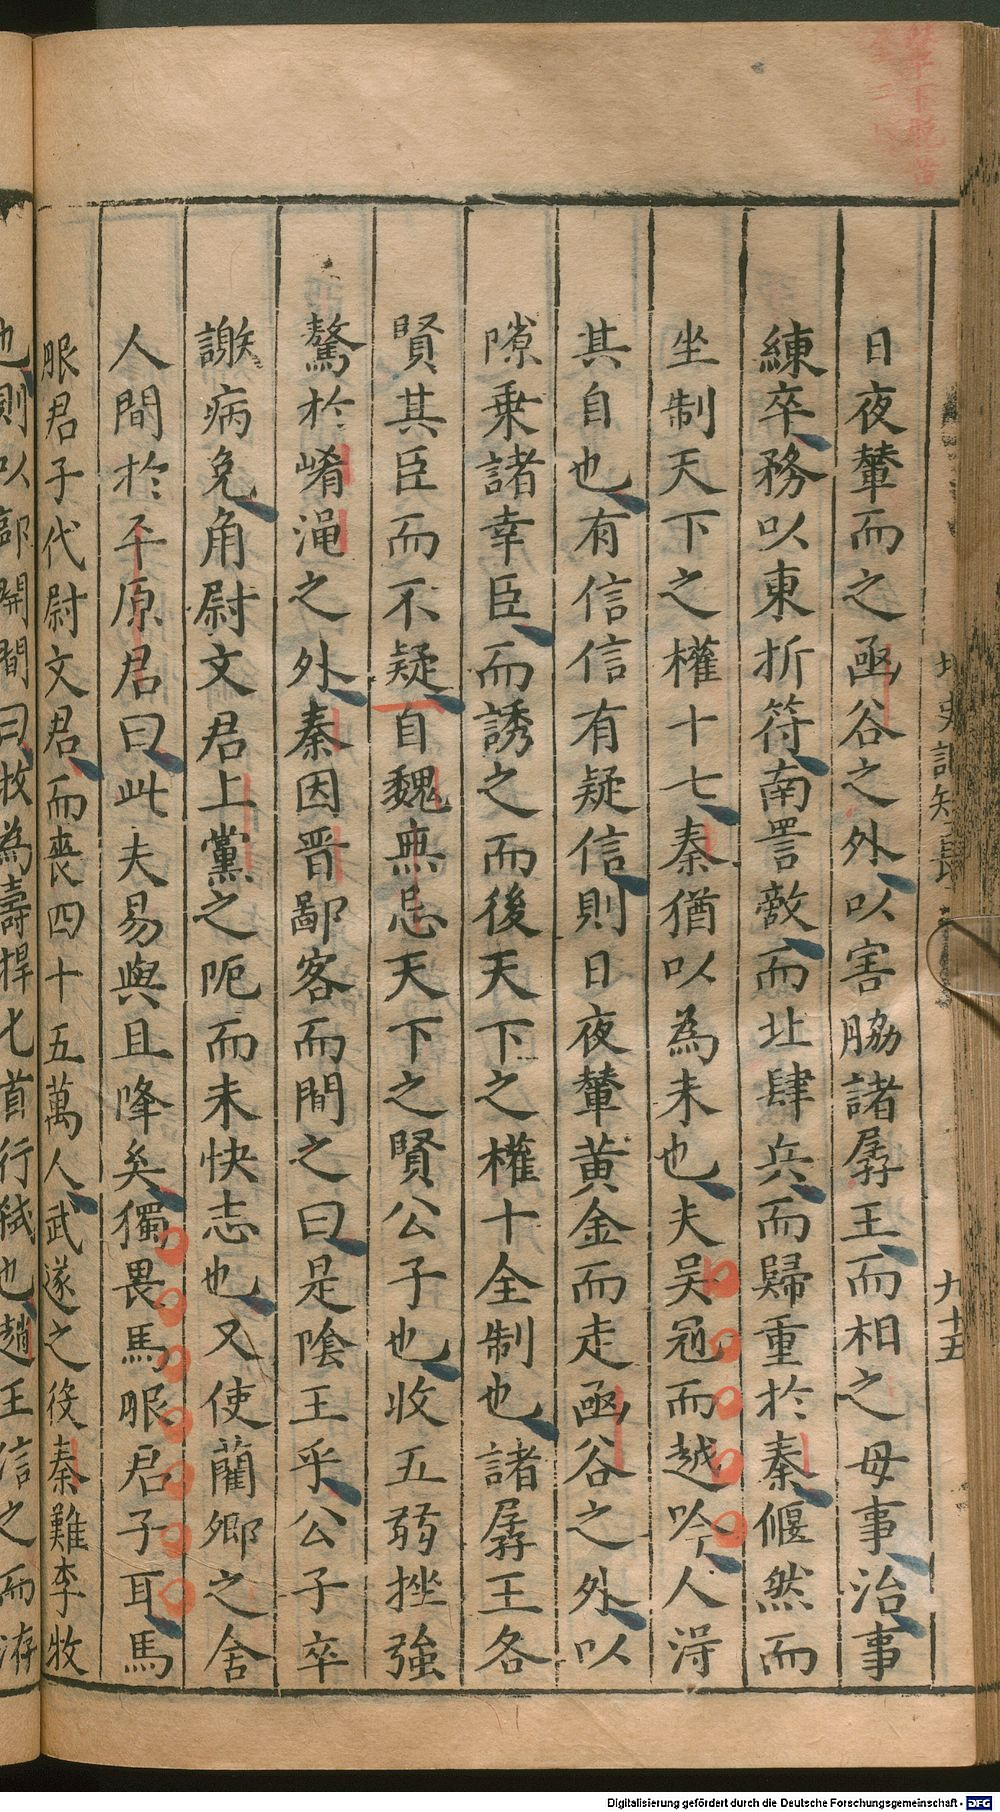 日夜輦而之函谷之外以害脇諸孱王而相之毋事治事
練卒務以東折符南詈敵而北肆兵而歸重於秦偃然而
坐制天下之權十七秦猶以為未也夫吴冠而越吟人淂
其自也有信信有疑信則日夜輦黃金而走函谷之外以
隙乗諸幸臣而誘之而後天下之權十全制也諸孱王各
賢其臣而不疑自魏無忌天下之賢公子也收五弱挫強
驁於崤澠之外秦因晋鄙客而間之曰是隂王乎公子卒
謝病免角尉文君上黨之阨而未快志也又使藺卿之舍
人間於平原君曰此夫易與且降矣獨畏馬服君子耳馬
服君子代尉文君而喪四十五萬人武遂之役秦難李牧
也則以郤開間曰牧為壽捍匕首行弑也趙王信之而洊
九十五
Digitalisierung gefördert durch die Deutsche Forschungsgemeinschaft - DFG